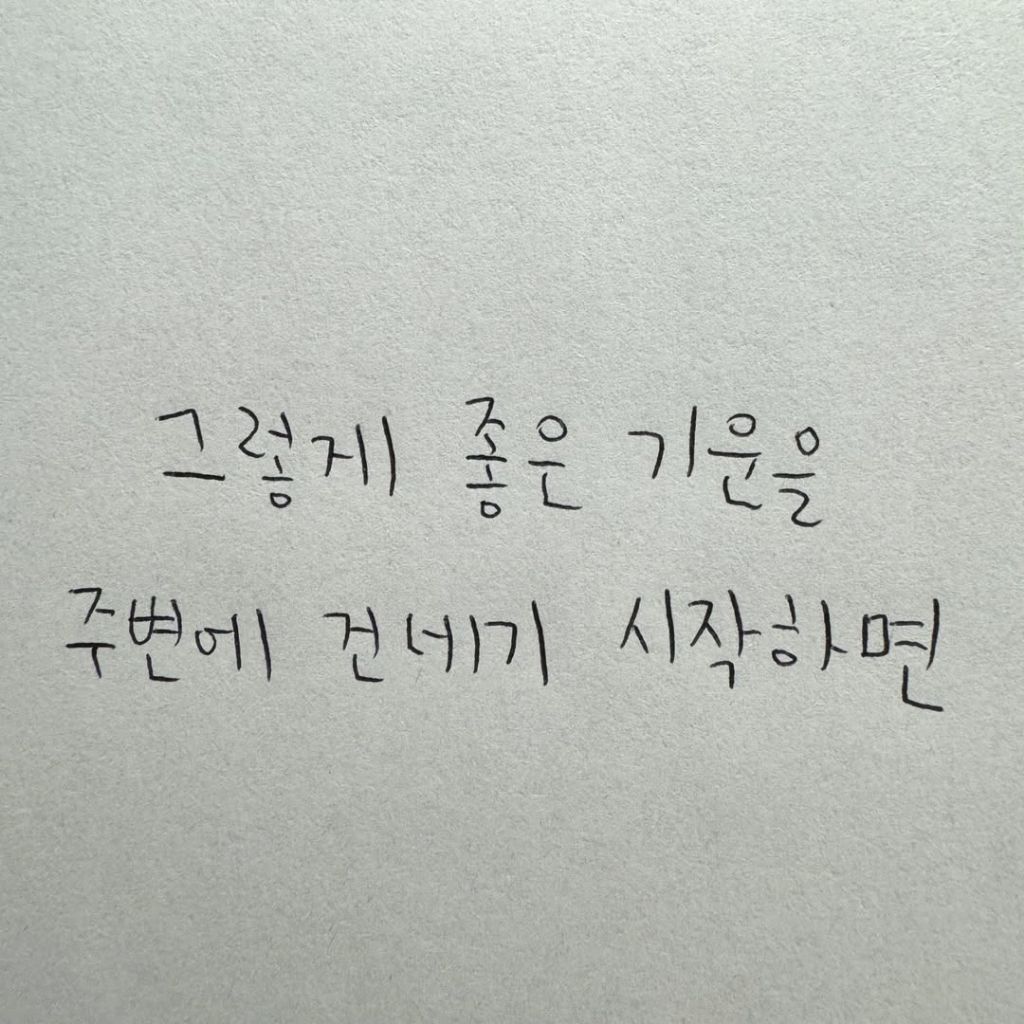 그렇게 좋은 기운을
주변에 건네기 시작하면